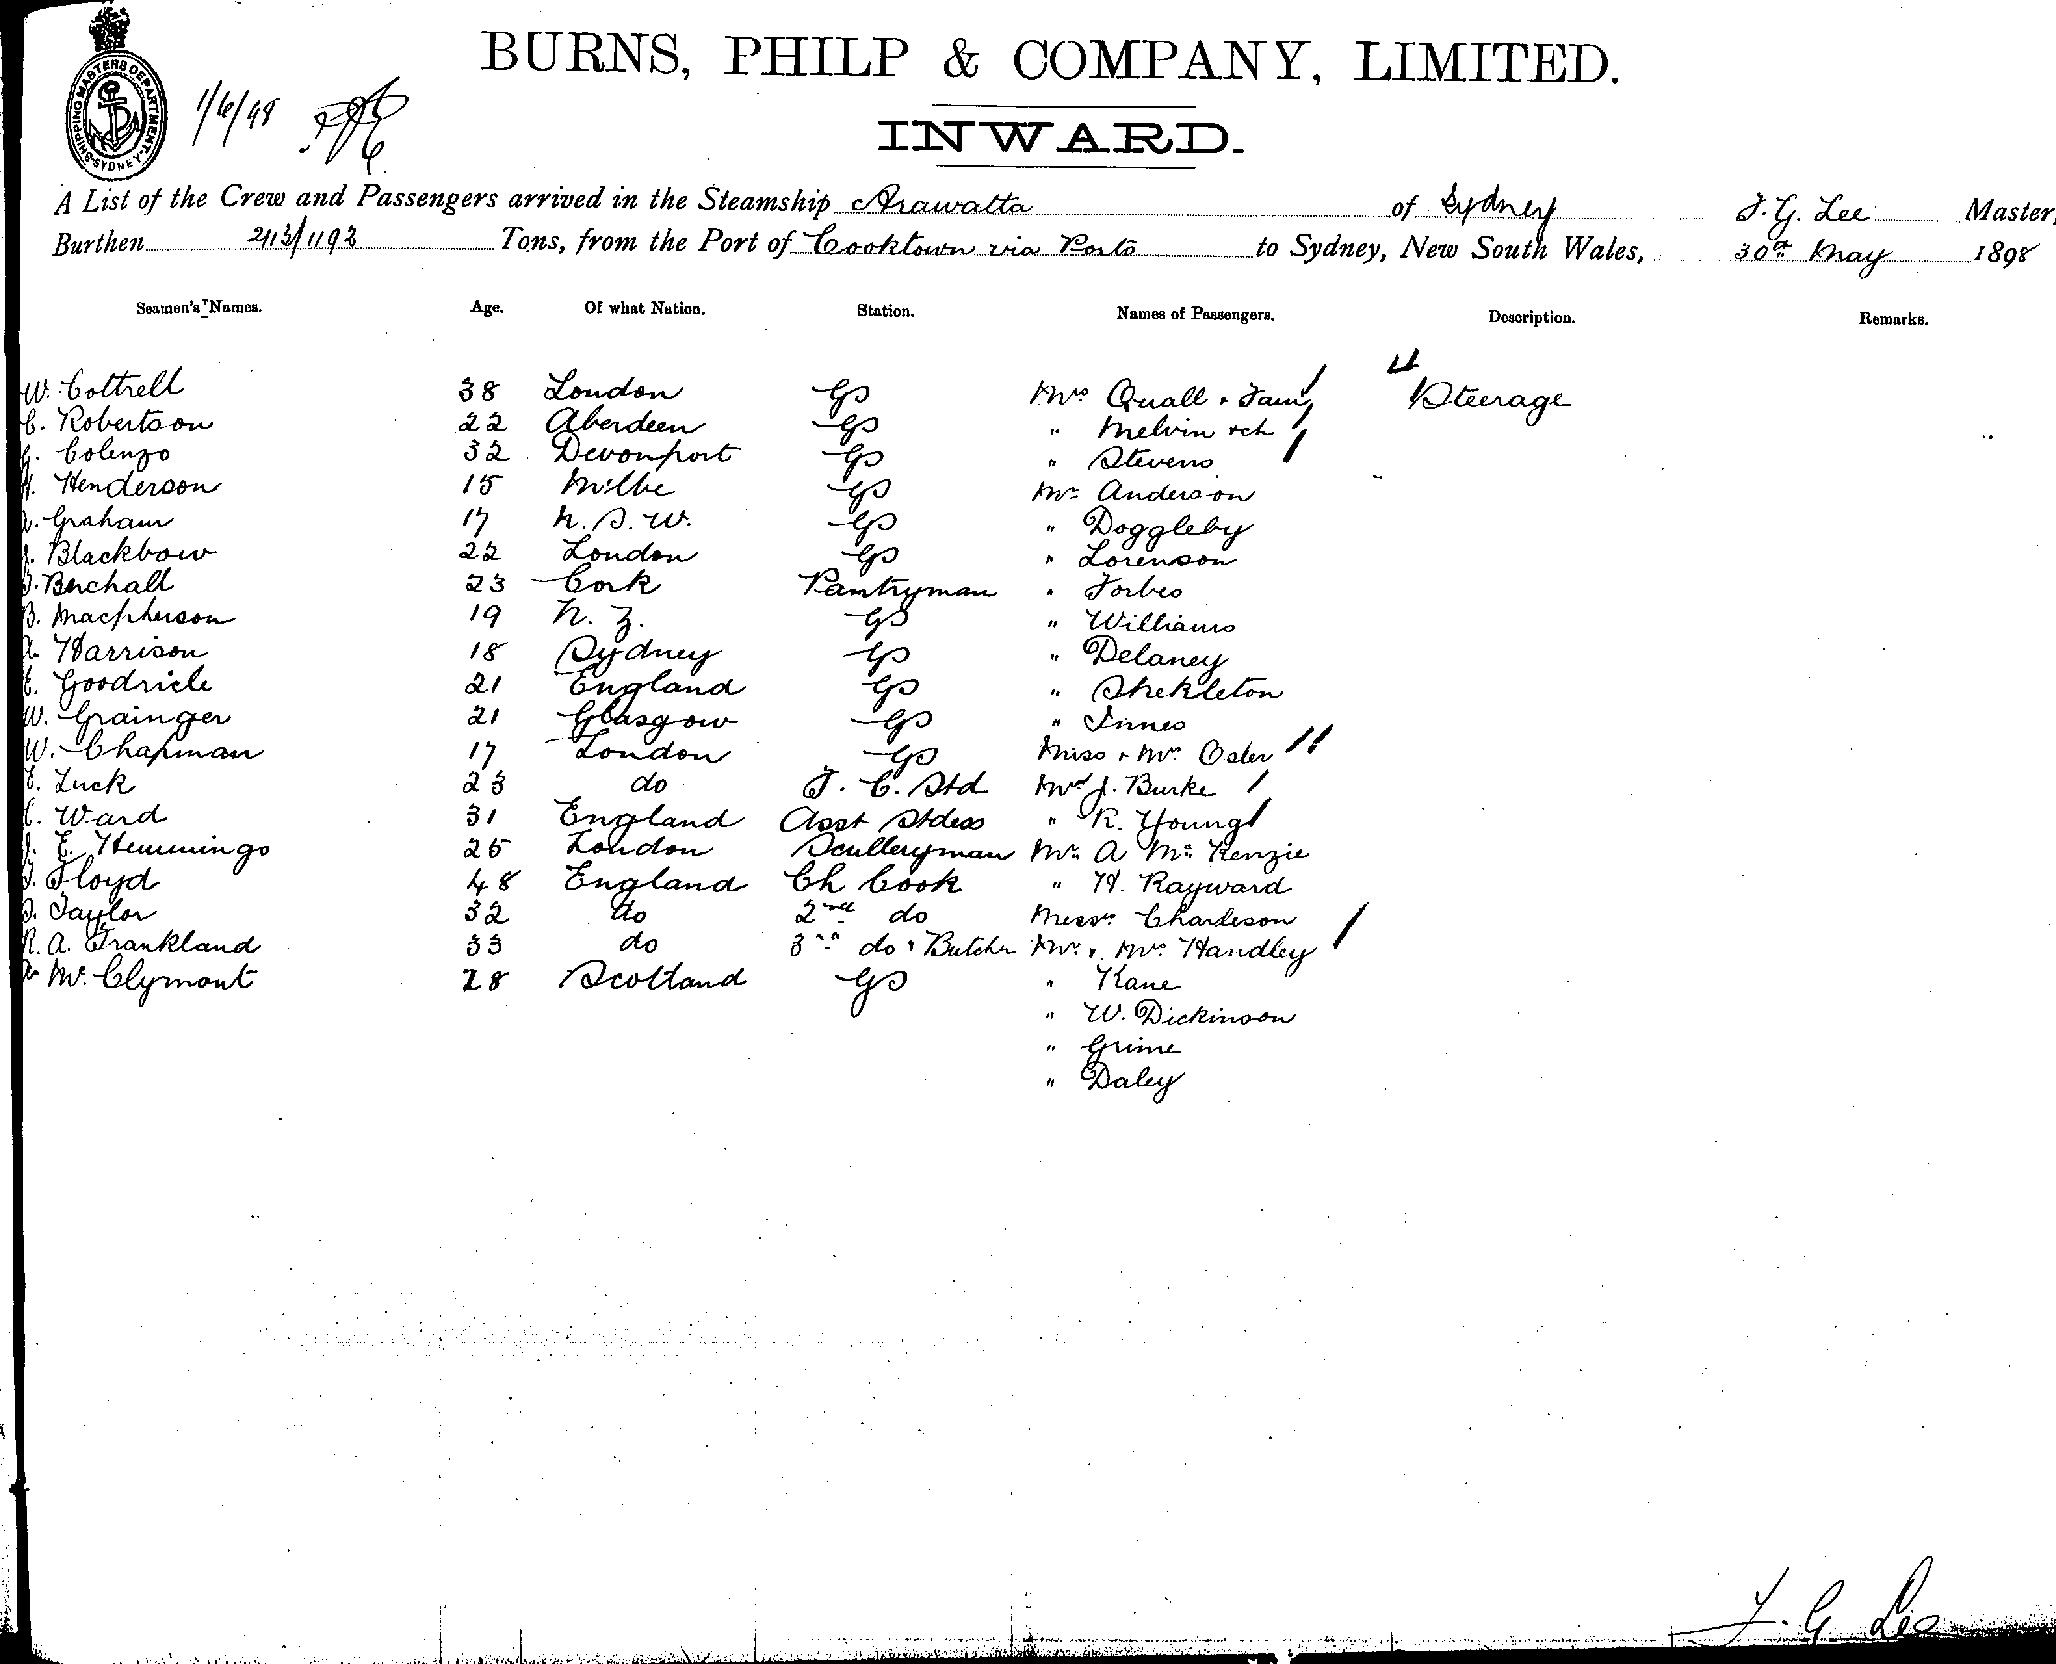 BURNS, PHILP & COMPANY, LIMITED.
SHIPPING MASTERS DEPARTMENT SYDNEY
1/6/98
INWARD.
A List of the Crew and Passengers arrived in the Steamship Arawatta of Sydney J. G. Lee Master,
Burthen 2113/1193 Tons, from the Port of Cooktown via Ports to Sydney, New South Wales, 30th May 1898
Seamen's Names. Age. Of what Nation. Station. Names of Passengers. Description. Remarks.
W. Cottrell 38 London GS Mrs Quall + Fam Steerage
C. Robertson 22 Aberdeen GS " Melvin + ch
Colenzo 32 Devonport GS " Stevens
H. Henderson 15 Melbe GS Mr Anderson
Graham 17 N. S. W. GS " Doggleby
Blackbow 22 London GS " Lorenson
Birchall 23 Cork Pantryman " Forbes
B. Macpherson 19 N. Z. GS " Williams
Harrison 18 Sydney GS " Delaney
E. Goodricle 21 England GS " Shekleton
W. Grainger 21 Glasgow GS " Innes
W. Chapman 17 London GS Miss + Mrs Osler
Luck 23 do F. C. Std Mrs J. Burke
Ward 31 England Asst Stdess " R. Young
J. E. Hemmings 25 London Sculleryman Mr A McKenzie
Floyd 48 England Ch Cook " H. Rayward
Taylor 32 do 2nd do Messrs Charleson
R. A. Frankland 33 do 3rd do + Butcher Mr + Mrs Handley
McClymont 28 Scotland GS " Kane
" W. Dickinson
" Grime
" Daley
J. G. Lee